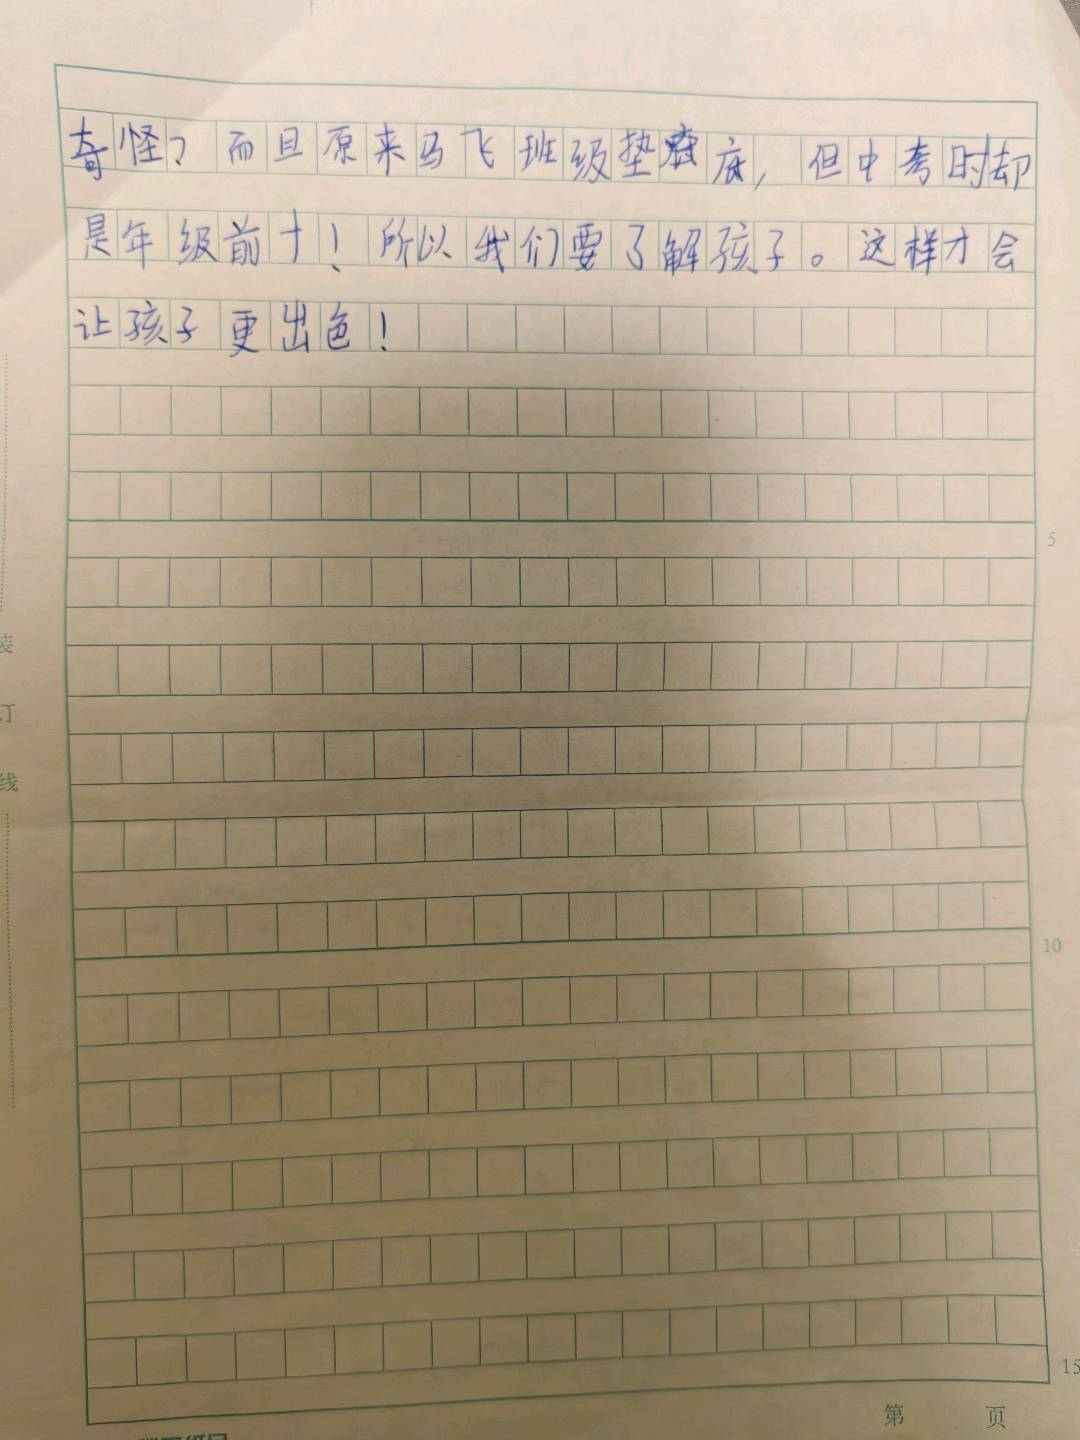 奇怪？而且原来马飞班级垫底，但中考时却
是年级前十！所以我们要了解孩子。这样才会
让孩子更出色！
5
装
订
线
10
15
第 页